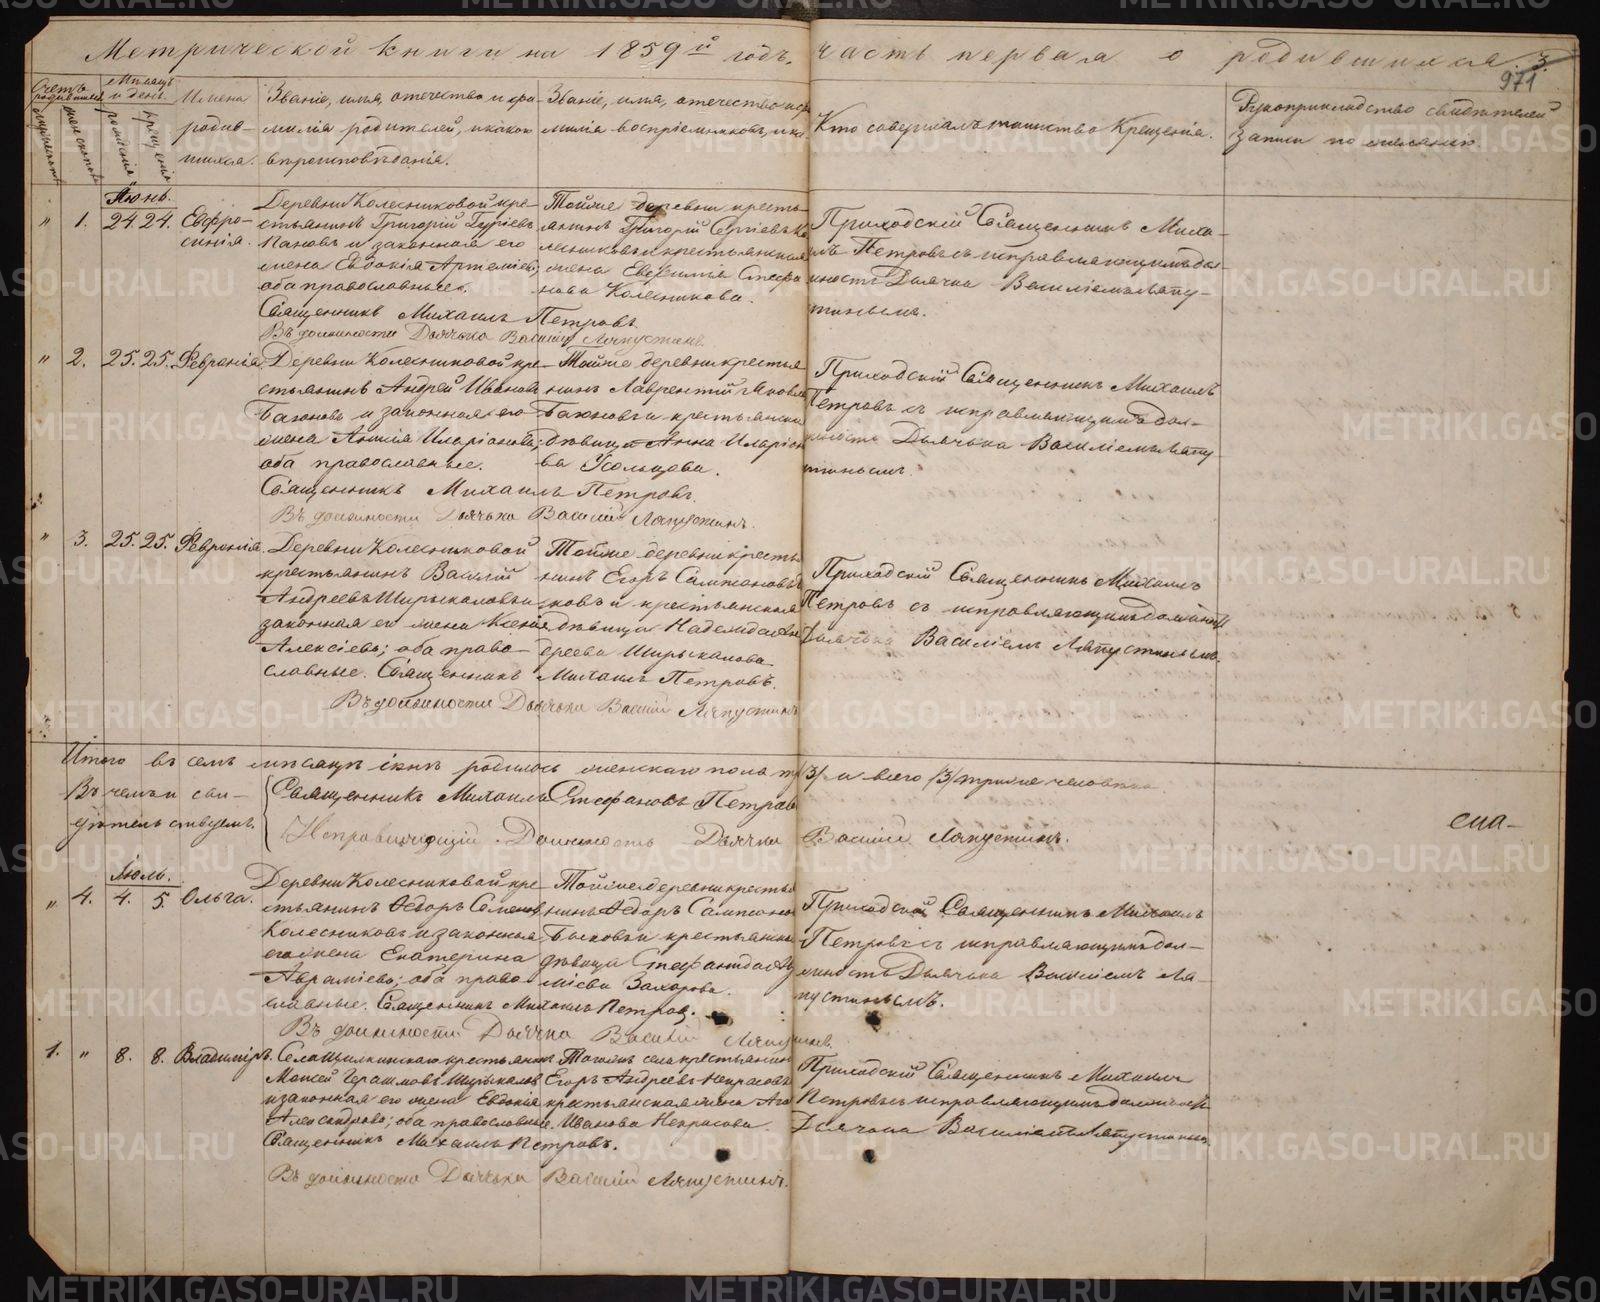 Метрической книги на 1859й годъ, часть первая о родившихся. 3.
971
Счетъ родившихся
мужеска
женска
Мѣсяцъ и день
рожденія
крещенія
Имена родив-
шихся.
Званіе, имя, отечество и фа-
милія родителей, и какого
вѣроисповѣданія.
Званіе, имя, отечество и фа
милія воспріемниковъ
Кто совершалъ таинство Крещенія.
Рукоприкладство свидѣтелей
записи по желанію.
Іюнь.
" 1. 24. 24. Евфро-
синія.
Деревни Колесниковой кре-
стьянинъ Григорій Гуріевъ
Пановъ и законная его
жена Евдокія Артеміева;
оба православные.
Священникъ Михаилъ Петровъ
Въ должности Дьячка Василій Ляпустинъ
Тойже деревни кресть-
янинъ Григорій Сергіевъ Ко
лесниковъ и крестьянская
жена Евфимія Стефа
нова Колесникова.
Приходскій Священникъ Миха-
илъ Петровъ съ исправляющимъ дол-
жность Дьячка Василіемъ Ляпу-
стинымъ.
" 2. 25. 25. Февронія.
Деревни Колесниковой кре-
стьянинъ Андрей Иванов
Бажновъ и законная его
жена Анисія Иларіонова;
оба православные.
Священникъ Михаилъ Петровъ.
Въ должности Дьячька Василій Ляпустинъ.
Тойже деревни крестья
нинъ Лаврентій Яковле
Бажновъ и крестьянска
дѣвица Анна Иларіон
ва Усольцова.
Приходскій Священникъ Михаилъ
Петровъ съ исправляющимъ дол-
жность Дьячька Василіемъ Ляпу-
стинымъ.
" 3. 25. 25. Февронія.
Деревни Колесниковой
крестьянинъ Василій
Андреевъ Ширыкаловъ и
законная его жена Ксенія
Алексіева; оба право-
славные. Священникъ Михаилъ Петровъ.
Въ должности Дьячька Василій Ляпустинъ
Тойже деревни кресть
нинъ Егоръ Сампсоновъ
ковъ и крестьянская
дѣвица Надежда Ан
дреева Ширыкалова
Приходскій Священникъ Михаилъ
Петровъ съ исправляющимъ должность
Дьячька Василіемъ Ляпустинымъ.
Итого въ семъ мѣсяцѣ іюнѣ родилось женскаго пола три /3/ и всего /3/ трое человѣка.
Въ чемъ и сви-
дѣтельствуемъ.
Священникъ Михаилъ Стефановъ Петровъ
Исправляющій Должность Дьячка Василій Ляпустинъ.
сна-
Іюль.
" 4. 4. 5. Ольга.
Деревни Колесниковой кре-
стьянинъ Ѳедоръ Семенов
Колесниковъ и законная
его жена Екатерина
Авраміева; оба право
славные. Священникъ Михаилъ Петров.
Въ должности Дьячка Василій Ляпустинъ.
Тойже деревни крестья
нинъ Ѳедоръ Сампсоно
Быковъ и крестьянска
дѣвица Стефанида
міева Захарова.
Приходскій Священникъ Михаилъ
Петровъ съ исправляющимъ дол-
жность Дьячька Василіемъ Ля-
пустинымъ.
1. " 8. 8. Владиміръ.
Села Щилкинскаго крестьянинъ
Моисей Герасимовъ Ширыкалов
и законная его жена Евдокія
Александрова; оба православные.
Священникъ Михаилъ Петровъ.
Въ должности Дьячька Василій Ляпустинъ.
Тогоже села крестьянин
Егоръ Андреевъ Некрасовъ
крестьянская жена
Иванова Некрасова.
Приходскій Священникъ Михаилъ
Петровъ съ исправляющимъ должность
Дьячька Василіемъ Ляпустинымъ.
METRIKI.GASO-URAL.RU